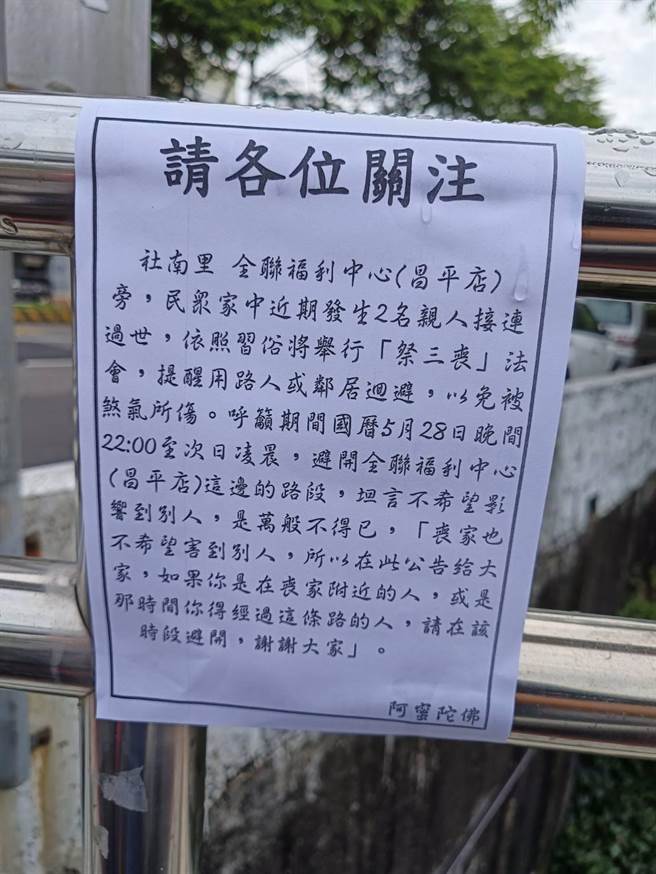 請各位關注
社南里 全聯福利中心(昌平店)
旁，民眾家中近期發生2名親人接連
過世，依照習俗將舉行「祭三喪」法
會，提醒用路人或鄰居迴避，以免被
煞氣所傷。呼籲期間國曆5月28日晚間
22:00至次日凌晨，避開全聯福利中心
(昌平店)這邊的路段，坦言不希望影
響到別人，是萬般不得已，「喪家也
不希望害到別人，所以在此公告給大
家，如果你是在喪家附近的人，或是
那時間你得經過這條路的人，請在該
時段避開，謝謝大家」。
阿蜜陀佛